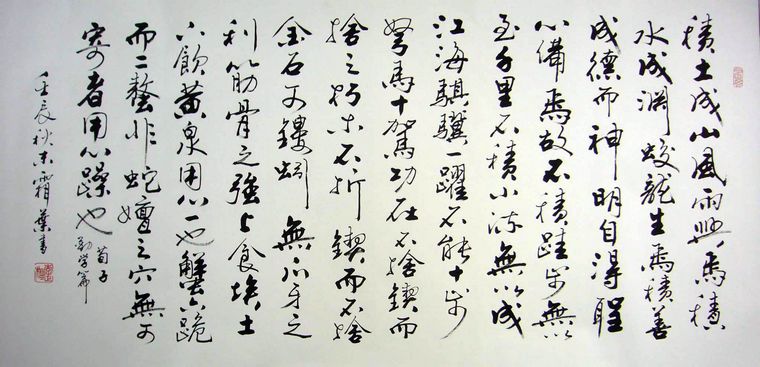 積土成山風雨興焉積
水成淵蛟龍生焉積善
成德而神明自得聖
心備焉故不積跬步無以
至千里不積小流無以成
江海騏驥一躍不能十步
駑馬十駕功在不捨鍥而
捨之朽木不折鍥而不捨
金石可鏤蚓無爪牙之
利筋骨之強上食埃土
下飲黃泉用心一也蟹六跪
而二螯非蛇蟺之穴無可
寄者用心躁也
荀子
勸学篇
壬辰秋末霜葉書